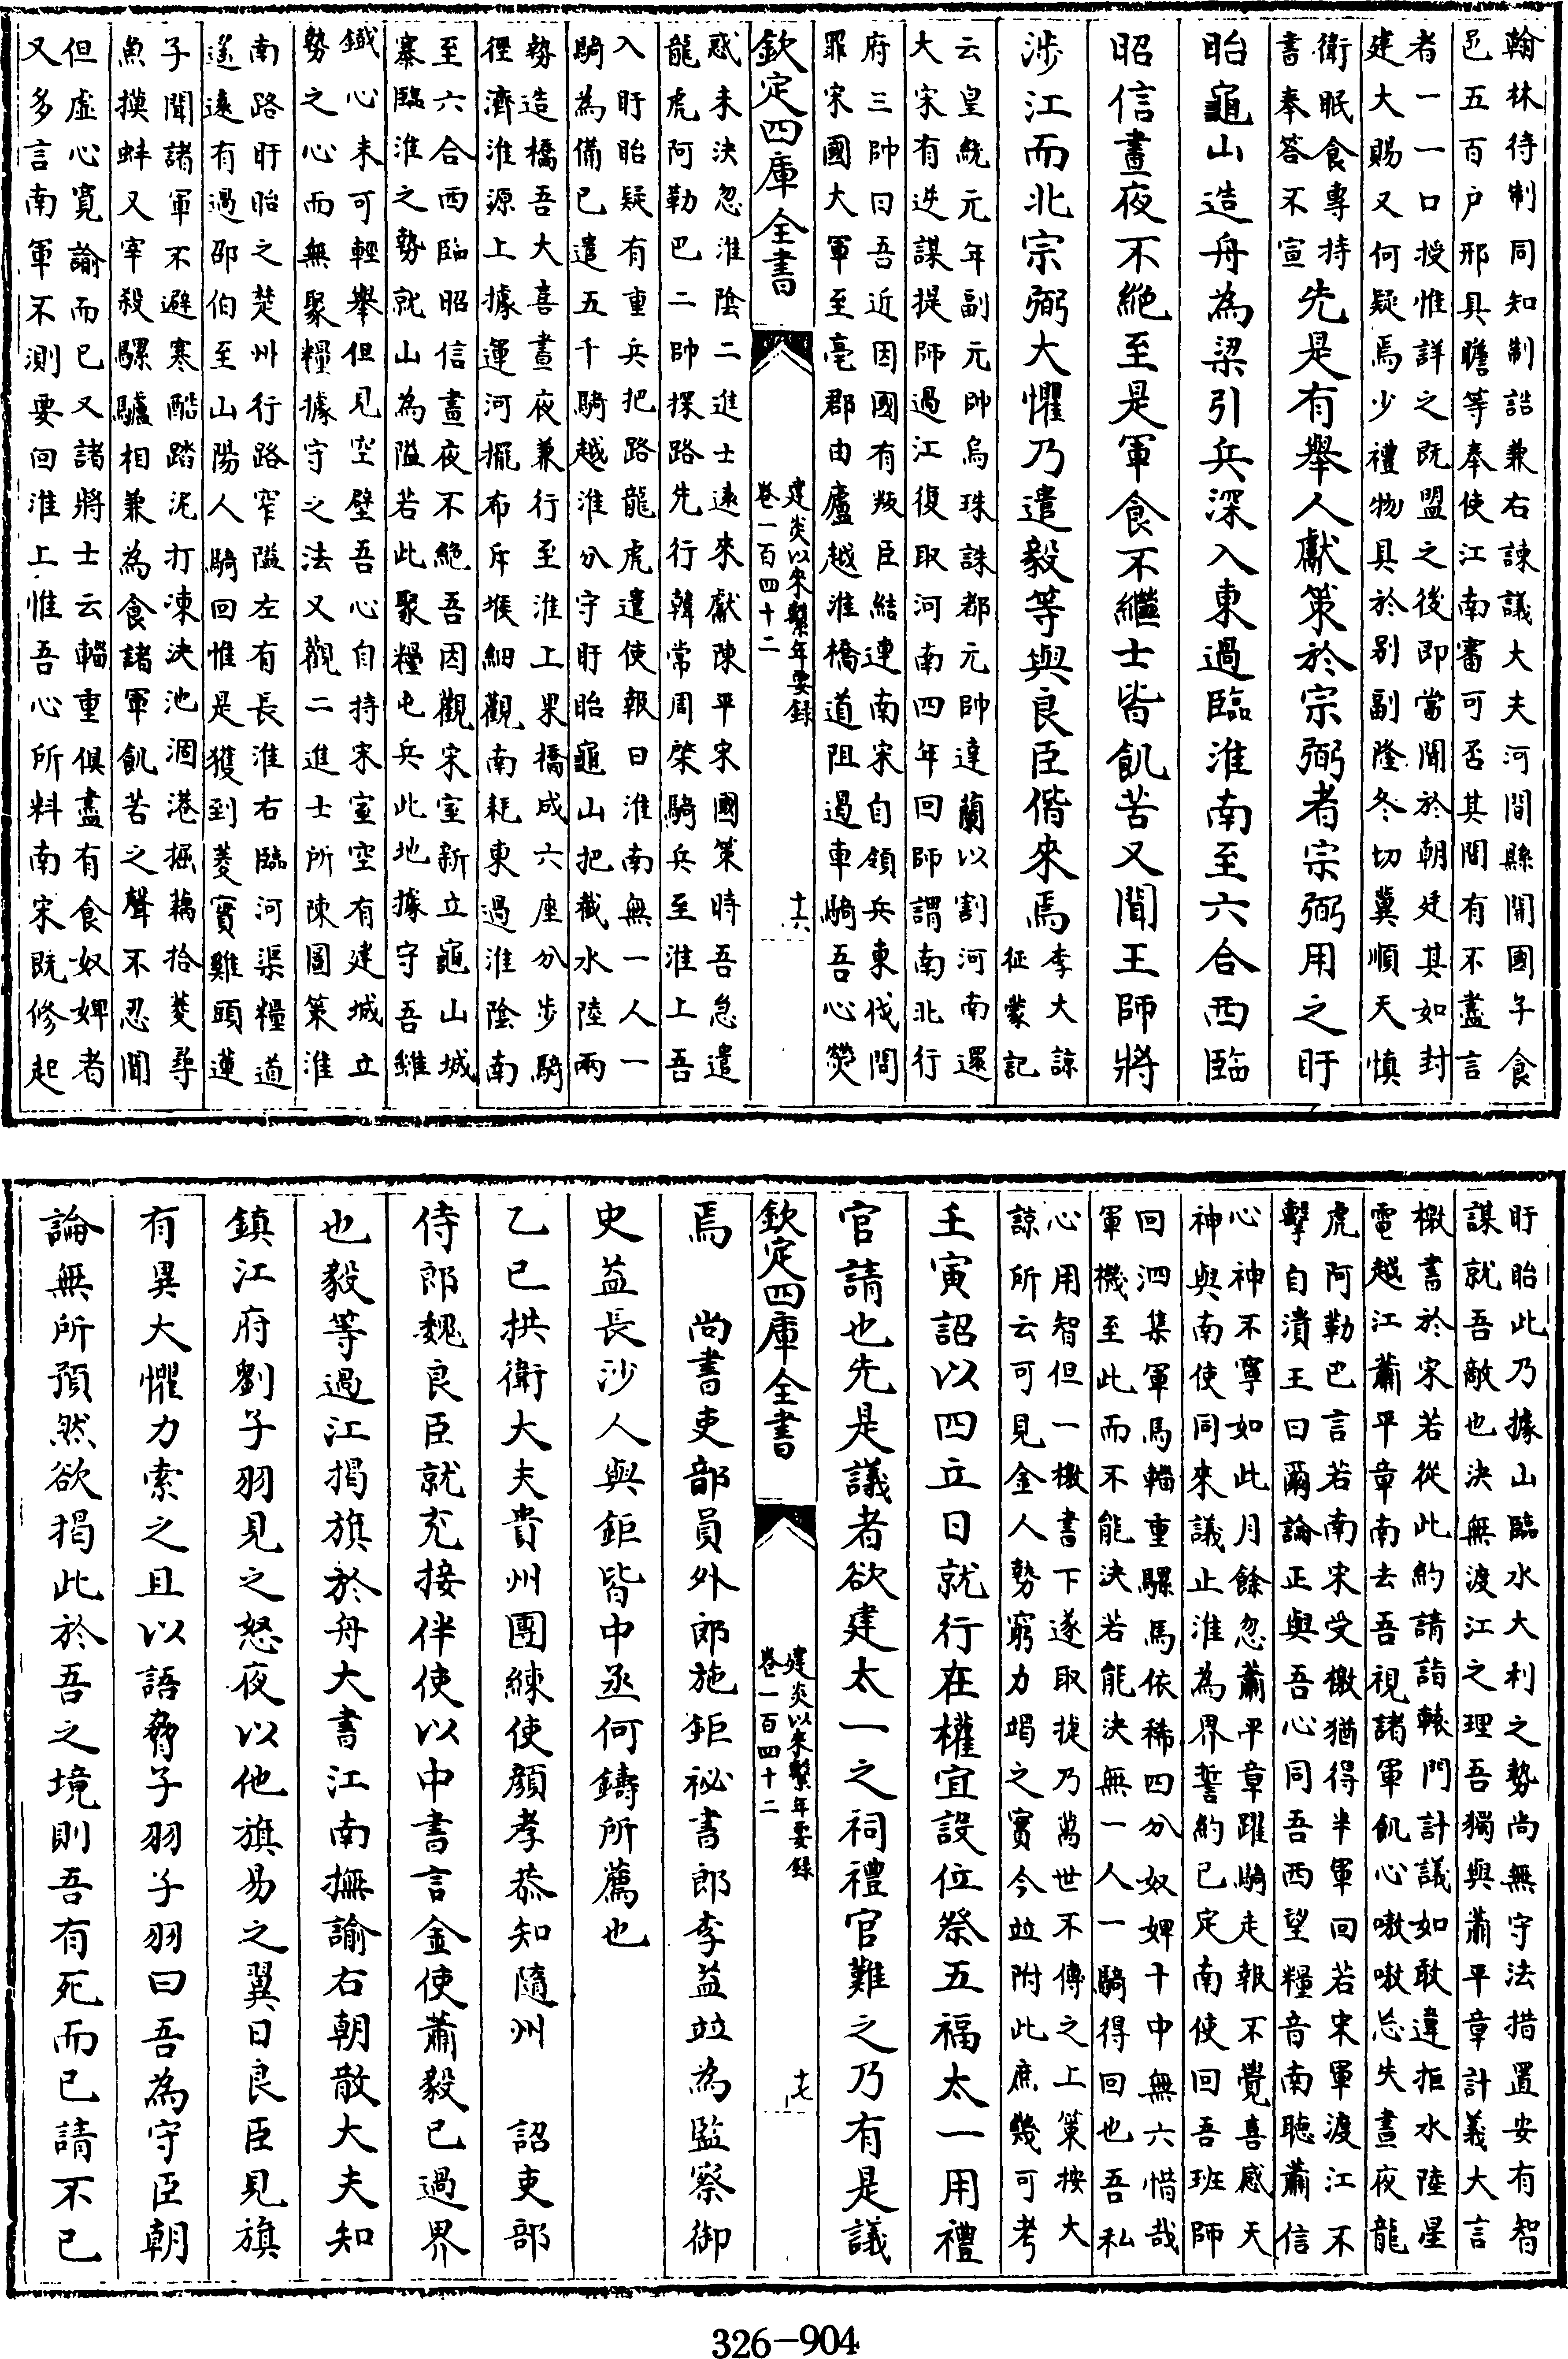 翰林待制同知制誥兼右諫議大夫河間縣開國子食
邑五百户邢具瞻等奉使江南審可否其間有不盡言
者一一口授惟詳之既盟之後即當聞於朝廷其如封
建大賜又何疑焉少禮物具於别副隆冬切冀順天慎
衛眠食專持
書奉答不宣
先是有舉人獻策於宗弼者宗弼用之盱
眙龜山造舟為梁引兵深入東過臨淮南至六合西臨
昭信晝夜不絶至是軍食不繼士皆飢苦又聞王師將
涉江而北宗弼大懼乃遣毅等與良臣偕來焉
李大諒
征蒙記
云皇統元年副元帥烏珠誅都元帥達蘭以割河南還
大宋有逆謀提師過江復取河南四年回師謂南北行
府三帥曰吾近因國有叛臣結連南宋自領兵東伐問
罪宋國大軍至亳郡由廬越淮橋道阻遏車騎吾心熒
欽定四庫全書
建炎以來繫年要録
卷一百四十二
十六
惑未決忽淮陰二進士遠來獻陳平宋國策時吾急遣
龍虎阿勒巴二帥探路先行韓常周榮騎兵至淮上吾
入盱眙疑有重兵把路龍虎遣使報曰淮南無一人一
騎為備已遣五千騎越淮分守盱眙龜山把截水陸兩
勢造橋吾大喜晝夜兼行至淮上果橋成六座分步騎
徑濟淮源上據運河擺布斥堠細觀南耗東過淮陰南
至六合西臨昭信晝夜不絶吾因觀宋室新立龜山城
寨臨淮之勢就山為隘若此聚糧屯兵此地據守吾雖
鐵心未可輕舉但見空壁吾心自持宋室空有建城立
勢之心而無聚糧據守之法又觀二進士所陳圖策淮
南路盱眙之楚州行路窄隘左有長淮右臨河渠糧道
遥遠有過邵伯至山陽人騎回惟是獲到菱實雞頭蓮
子聞諸軍不避寒酷踏泥打凍決池涸港掘藕拾菱尋
魚摸蚌又宰殺騾驢相兼為食諸軍飢苦之聲不忍聞
但虚心寛諭而已又諸將士云輜重俱盡有食奴婢者
又多言南軍不測要回淮上惟吾心所料南宋既修起
盱眙此乃據山臨水大利之勢尚無守法措置安有智
謀就吾敵也決無渡江之理吾獨與蕭平章計義大言
檄書於宋若從此約請詣轅門計議如敢違拒水陸星
電越江蕭平章南去吾視諸軍飢心嗷嗷忘失晝夜龍
虎阿勒巴言若南宋受檄猶得半軍回若宋軍渡江不
擊自潰王曰爾論正與吾心同吾西望糧音南聽蕭信
心神不寧如此月餘忽蕭平章躍騎走報不覺喜感天
神與南使同來議止淮為界誓約已定南使回吾班師
回泗集軍馬輜重騾馬依稀四分奴婢十中無六惜哉
軍機至此而不能決若能決無一人一騎得回也吾私
心用智但一檄書下遂取捷乃萬世不傳之上策按大
諒所云可見金人勢窮力竭之實今竝附此庶幾可考
壬寅詔以四立日就行在權宜設位祭五福太一用禮
官請也先是議者欲建太一之祠禮官難之乃有是議
欽定四庫全書
建炎以來繫年要録
卷一百四十二
十七
焉　尚書吏部員外郎施鉅祕書郎李益竝為監察御
史益長沙人與鉅皆中丞何鑄所薦也
乙巳拱衛大夫貴州團練使顔孝恭知隨州　詔吏部
侍郎魏良臣就充接伴使以中書言金使蕭毅已過界
也毅等過江揭旗於舟大書江南撫諭右朝散大夫知
鎮江府劉子羽見之怒夜以他旗易之翼日良臣見旗
有異大懼力索之且以語脅子羽子羽曰吾為守臣朝
論無所預然欲揭此於吾之境則吾有死而已請不已
326-904